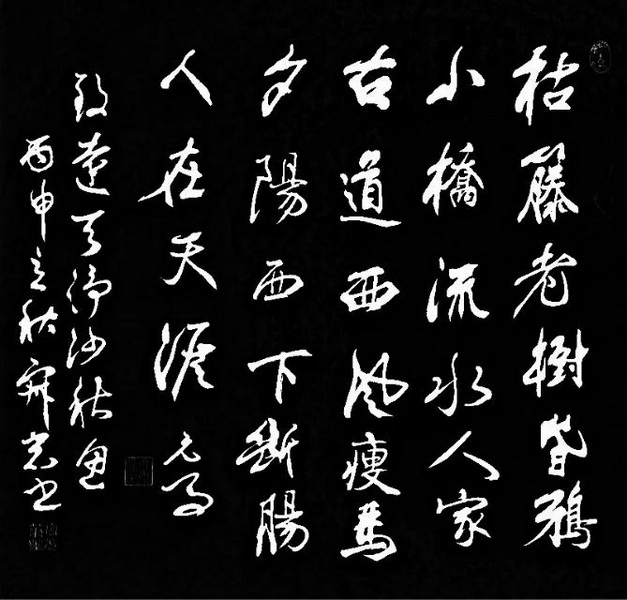 枯籐老樹昏鴉
小橋流水人家
古道西風瘦馬
夕陽西下斷腸
人在天涯 元馬
致遠天淨沙秋思
丙申立秋